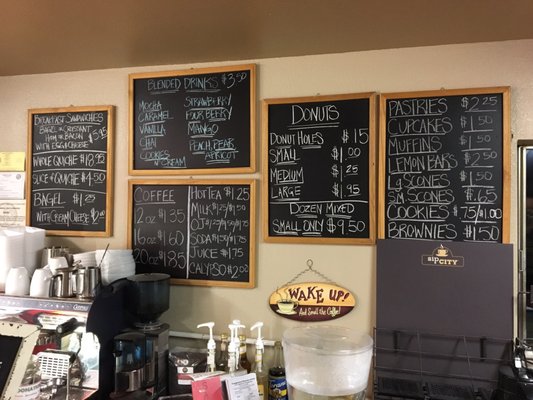 BREAKFAST SANDWICHES
BAGEL OR CROISSANT
HAM OR BACON
WITH EGG & CHEESE $3.95
WHOLE QUICHE $18.95
SLICE OF QUICHE $4.50
BAGEL $1.25
WITH CREAM CHEESE $2.00
BLENDED DRINKS $3.50
MOCHA
CARAMEL
VANILLA
CHAI
COOKIES
N CREAM
STRAWBERRY
FOUR BERRY
MANGO
PEACH PEAR
APRICOT
COFFEE
12oz $1.35
16oz $1.60
20oz $1.85
HOT TEA $1.25
MILK
O.J.
SODA
JUICE $1.75
CALYPSO $2.00
DONUTS
DONUT HOLES $.15
SMALL $1.00
MEDIUM
LARGE
DOZEN MIXED
SMALL ONLY $9.50
PASTRIES $2.25
CUPCAKES $1.50
MUFFINS
LEMON BARS $2.50
LG SCONES $1.50
SM. SCONES $.65
COOKIES $.75/$1.00
BROWNIES $1.50
SIP CITY
WAKE UP!
And Smell the Coffee